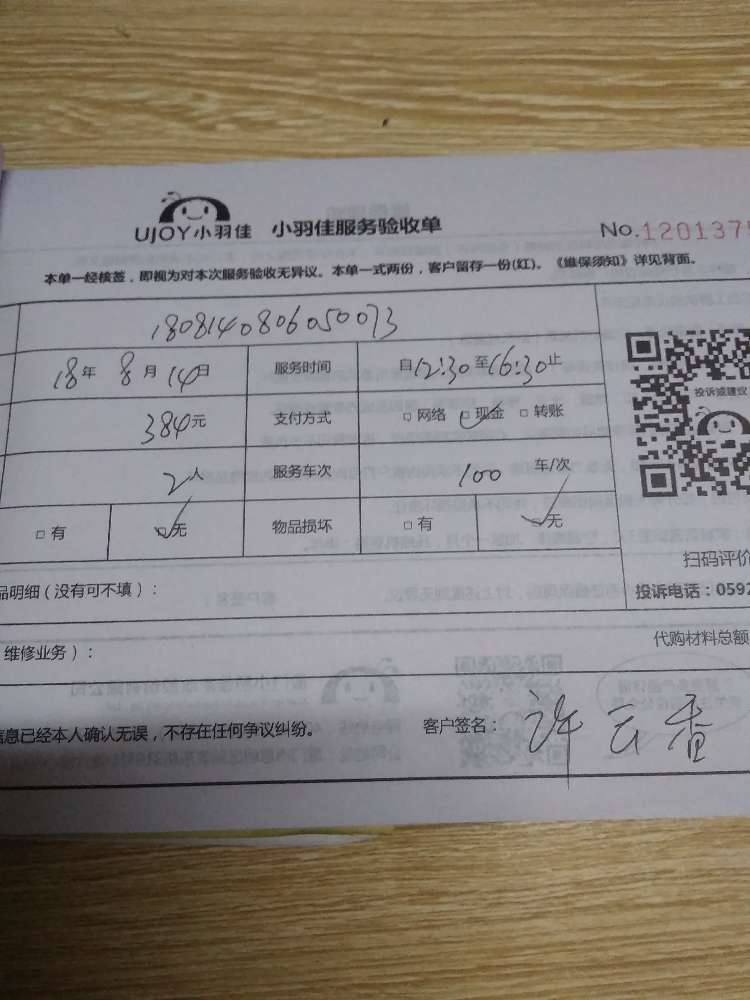 UJOY小羽佳 小羽佳服务验收单 No.120137
本单一经核签，即视为对本次服务验收无异议。本单一式两份，客户留存一份(红)。《维保须知》详见背面。
1808140806050073
18年 8月14日 服务时间 自12:30至16:30止
投诉或建议
384元 支付方式 □网络 □现金 □转账
2人 服务车次 100 车/次
□有 □无 物品损坏 □有 □无
扫码评价
品明细（没有可不填）： 投诉电话：0592
维修业务）： 代购材料总额
信息已经本人确认无误，不存在任何争议纠纷。 客户签名： 许云香